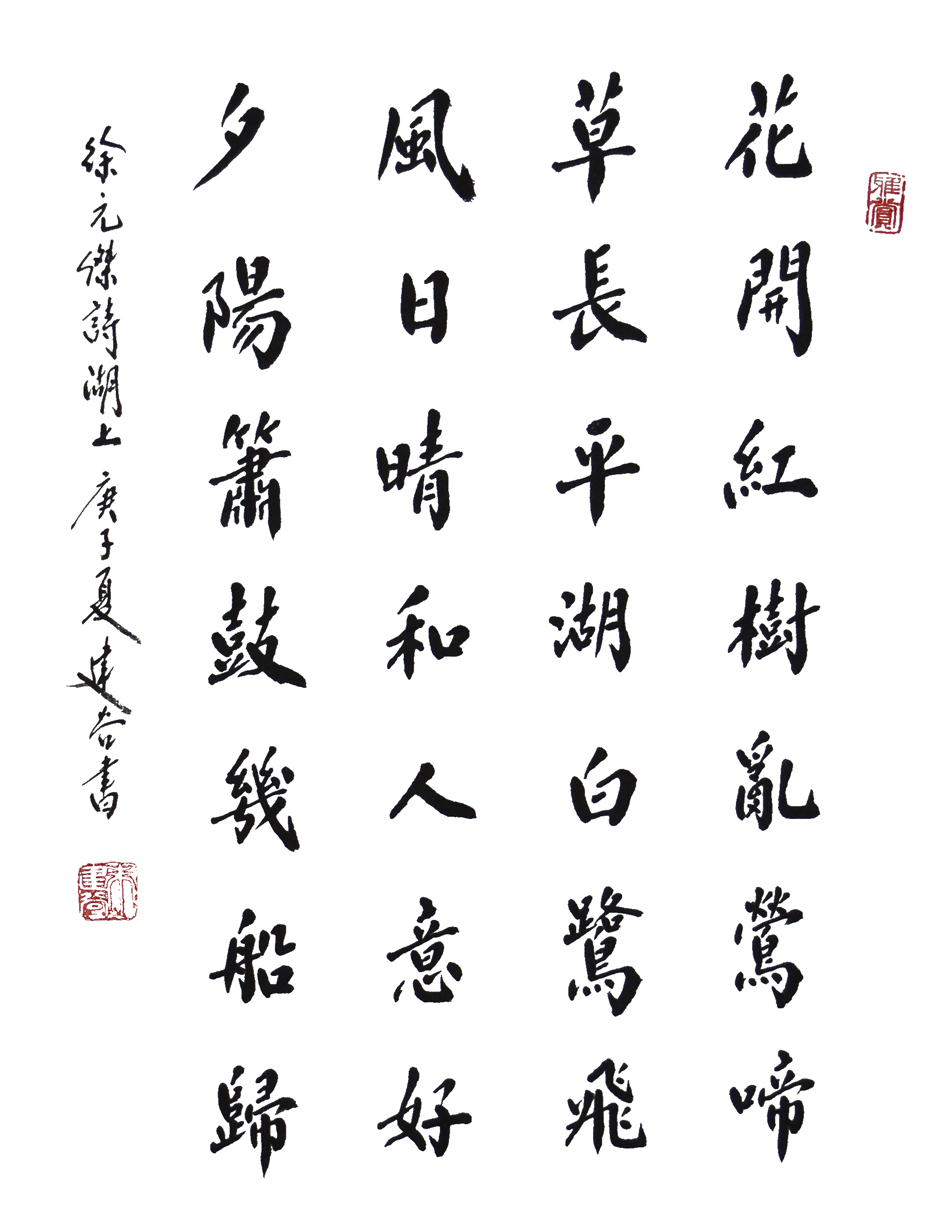 雅賞
花開紅樹亂鶯啼
草長平湖白鷺飛
風日晴和人意好
夕陽簫鼓幾船歸
徐元傑詩湖上庚子夏建谷書